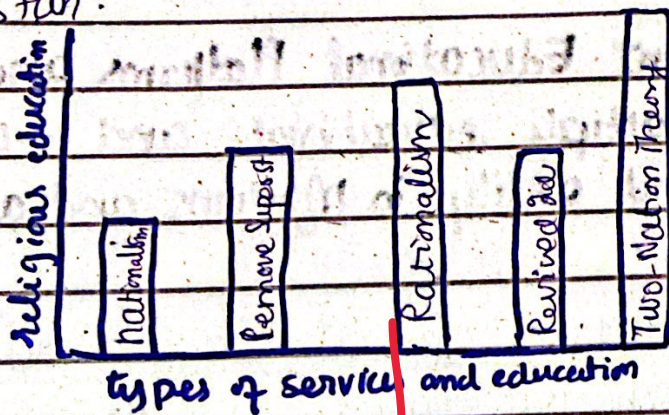 religious education
nationalism
Remove Superst
Rationalism
Revived
Two-Nation Theory
types of service and education